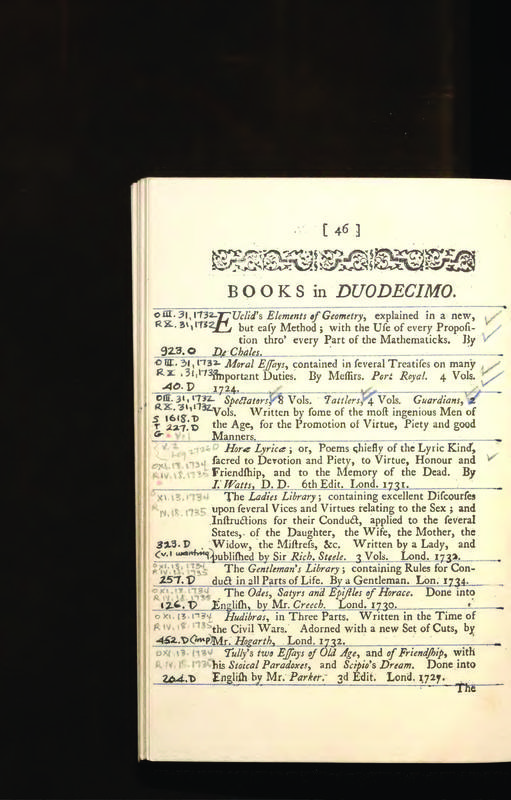 [ 46 ]
BOOKS in DUODECIMO.
O III. 31, 1732 EUclid's Elements of Geometry, explained in a new,
R X. 31, 1732 but eaſy Method; with the Uſe of every Propoſi-
tion thro' every Part of the Mathematicks. By
923.O De Chales.
O III. 31, 1732 Moral Eſſays, contained in ſeveral Treatiſes on many
R X. 31, 1732 important Duties. By Meſſirs. Port Royal. 4 Vols.
40.D 1724.
O III. 31, 1732 Spectators, 8 Vols. Tattlers, 4 Vols. Guardians, 2
R X. 31, 1732 Vols. Written by ſome of the moſt ingenious Men of
S 1618.D
T 227.D the Age, for the Promotion of Virtue, Piety and good
G Manners.
Horæ Lyricæ; or, Poems chiefly of the Lyric Kind,
O XI. 13. 1734 ſacred to Devotion and Piety, to Virtue, Honour and
R IV. 18. 1735 Friendſhip, and to the Memory of the Dead. By
I. Watts, D. D. 6th Edit. Lond. 1731.
O XI. 13. 1734 The Ladies Library; containing excellent Diſcourſes
R IV. 18. 1735 upon ſeveral Vices and Virtues relating to the Sex; and
Inſtructions for their Conduct, applied to the ſeveral
States, of the Daughter, the Wife, the Mother, the
323.D Widow, the Miſtreſs, &c. Written by a Lady, and
(v. 1 wanting) publiſhed by Sir Rich. Steele. 3 Vols. Lond. 1732.
O XI. 13. 1734 The Gentleman's Library; containing Rules for Con-
R IV. 18. 1735
257.D duct in all Parts of Life. By a Gentleman. Lon. 1734.
O XI. 13. 1734 The Odes, Satyrs and Epiſtles of Horace. Done into
R IV. 18. 1735
126.D Engliſh, by Mr. Creech. Lond. 1730.
O XI. 13. 1734 Hudibras, in Three Parts. Written in the Time of
R IV. 18. 1735 the Civil Wars. Adorned with a new Set of Cuts, by
452.D (imp) Mr. Hogarth, Lond. 1732.
O XI. 13. 1734 Tully's two Eſſays of Old Age, and of Friendſhip, with
R IV. 18. 1735 his Stoical Paradoxes, and Scipio's Dream. Done into
204.D Engliſh by Mr. Parker. 3d Edit. Lond. 1727.
The